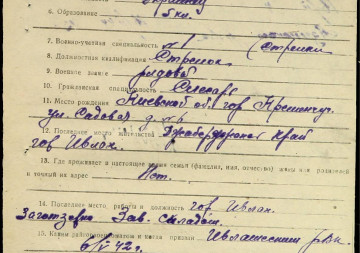 6. Образование 5 кл.
7. Военно-учетная специальность №1 (Стрелки
8. Должностная квалификация Стрелок
9. Военное звание рядовой
10. Гражданская специальность Слесарь
11. Место рождения Киевской обл гор Кременчуг
ул. Садовая д.
12. Последнее место жительства край
гор Ивлах.
13. Где проживает в настоящее время семья (фамилия, имя, отчество) жены или родителей
и точный их адрес Нет.
14. Последнее место, работы и должность гор. Ивлах.
Заготзерно Зав. складом.
15. Каким райвоенкоматом и когда призван Ивлахским рвк.
6/V 42 г.